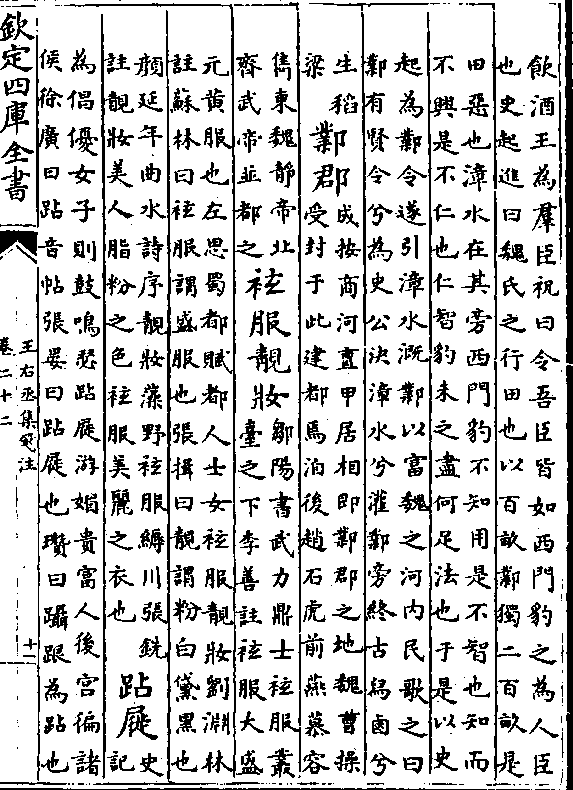 飲酒王為羣臣祝曰令吾臣皆如西門豹之為人臣
也史起進曰魏氏之行田也以百畝鄴獨二百畝是
田惡也漳水在其旁西門豹不知用是不智也知而
不興是不仁也仁智豹未之盡何足法也于是以史
起為鄴令遂引漳水溉鄴以富魏之河内民歌之曰
鄴有賢令兮為史公決漳水兮灌鄴旁終古舄鹵兮
生稻
梁
鄴郡
成按商河亶甲居相即鄴郡之地魏曹操
受封于此建都焉泊後趙石虎前燕慕容
雋東魏靜帝北
齊武帝並都之
袨服靚妝
鄒陽書武力鼎士袨服叢
臺之下李善註袨服大盛
元黄服也左思蜀都賦都人士女袨服靚妝劉淵林
註蘇林曰袨服謂盛服也張揖曰靚謂粉白黛黑也
顏延年曲水詩序靚妝藻野袨服縟川張銑
註靚妝美人脂粉之色袨服美麗之衣也
跕屣
史
記
為倡優女子則鼓鳴瑟跕屣游媚貴富人後宮徧諸
侯徐廣曰跕音帖張晏曰跕屣也瓚曰躡跟為跕也
欽定四庫全書
王右丞集箋注
卷二十二
十